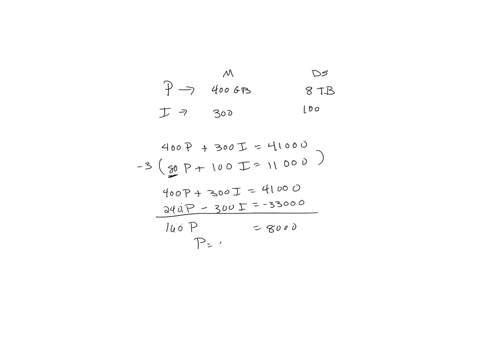 M DS
P → 400 GB 8 TB
I → 300 100
400P + 300I = 41000
-3 ( 80 P + 100 I = 11 000 )
400P + 300I = 41000
240P - 300I = -33000
160 P = 8000
P =